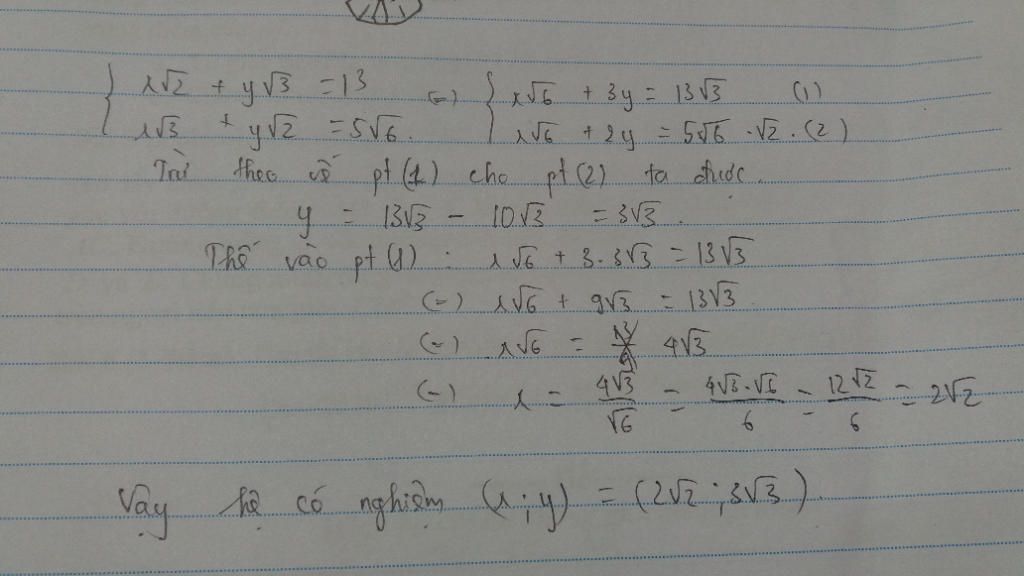 { x√2 + y√3 = 13 (=) { x√6 + 3y = 13√3 (1)
x√3 + y√2 = 5√6. x√6 + 2y = 5√6 . √2 . (2)
Trừ theo vế pt (1) cho pt (2) ta được.
y = 13√3 - 10√3 = 3√3.
Thế vào pt (1) : x√6 + 3.3√3 = 13√3
(=) x√6 + 9√3 = 13√3
(=) x√6 = 4√3
(=) x = 4√3/√6 = 4√3.√6/6 = 12√2/6 = 2√2
Vậy hệ có nghiệm (x;y) = (2√2 ; 3√3).